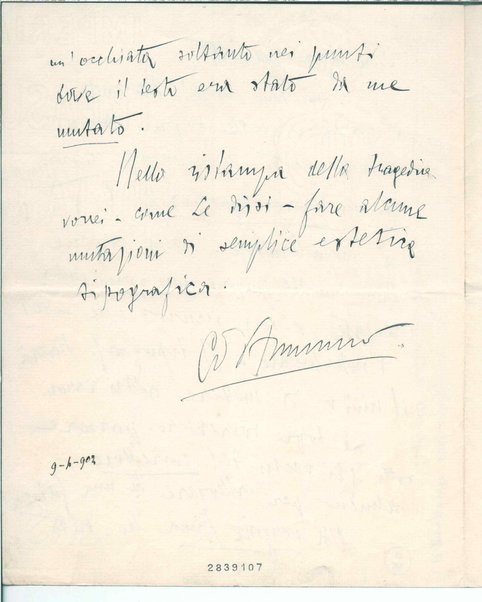 un'occhiata soltanto nei punti
dove il testo era stato da me
mutato.
Nella ristampa della tragedia
vorrei - come Le dissi - fare alcune
mutazioni di semplice estetica
tipografica.
d'Annunzio
2839107